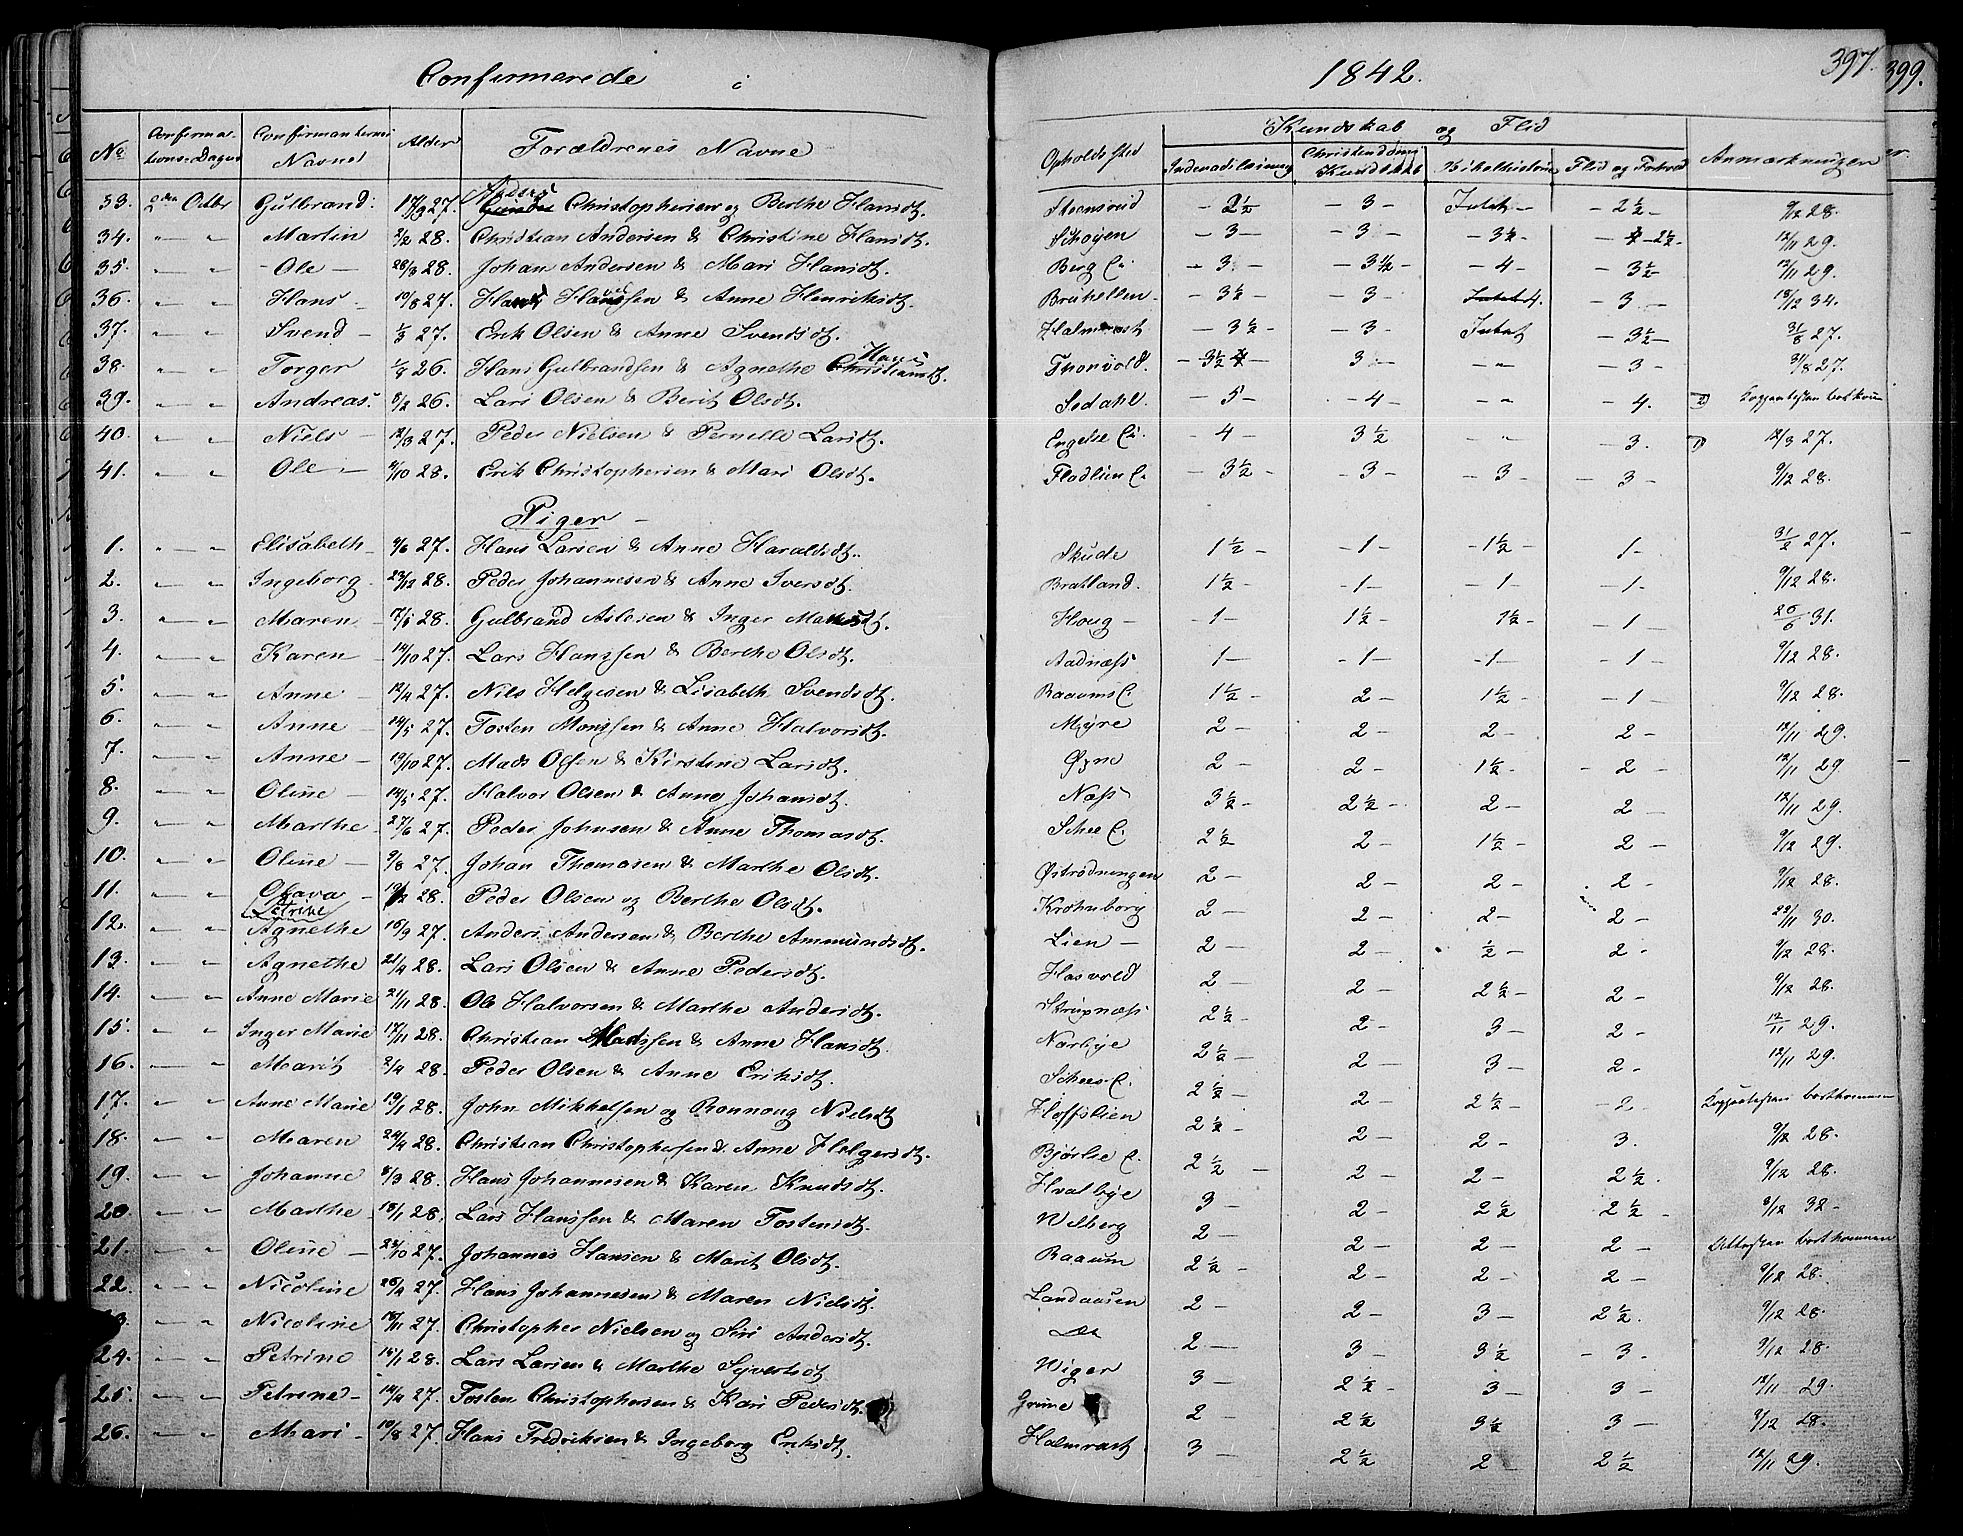 Confirmerede i 1842. 397. 399.
No Confirmations-Dagen Confirmanternes Navne Alder Forældrenes Navne Opholds sted Kundskab og Flid Anmærkningen
Indenadslæsning Christendoms Kundskab Bibelhistorie Flid og Forhold
33. 2den Octbr Gulbrand. 17/9 27. Anders Christophersen og Berthe Hansdt. Steensrud - 2½ - - 3 - Intet - - 2½ - 9/12 28.
34. " " Martin 2/2 28. Christian Andersen & Christine Hansdt. Schøyen - 3 - - 3 - - 3½ - - 2½ - 12/11 29.
35. " " Ole 28/3 28. Johan Andersen & Mari Hansdt. Berg E. - 3 - - 3½ - - 4 - - 3½ - 12/11 29.
36. " " Hans 19/8 27. Hans Hansen & Anne Henriksdt. - 3½ - - 3 - Intet 4. - 3 - 18/12 34.
37. " " Svend 1/3 27. Erik Olsen & Anne Svendsdt. Halmrast - 3½ - - 3 - Intet - 3½ - 31/8 27.
38. " " Torger 26. Hans Gulbrandsen & Agnethe Hans Christiansdt. Thonvold. - 3½ - 3 - - " - 3 - 31/8 27.
39. " " Andreas. 8/2 26. Lars Olsen & Berit Olsdt. Sodahl. - 5 - - 4 - - " - 4. 2) Koppeattesten bortkom
40. " " Niels 12/3 27. Peder Nielsen & Pernille Larsdt. Engelse E. - 4 - 3½ - " - 3. 1) 12/3 27.
41. " " Ole 9/10 28. Erik Christophersen & Mari Olsdt. Fladlien E. - 3½ - - 3 - - 3 - 3 - 9/12 28.
Piger
1. " " Elisabeth 9/6 27. Hans Larsen & Anne Haraldsdt. Skude 1½ - - 1 - - 1½ - 1 - 31/2 27.
2. " " Ingeborg 23/12 28. Peder Johannesen & Anne Iversdt. Bratland. 1½ - - 1 - - 1 - - 1 - 9/12 28.
3. " " Maren 7/1 28. Gulbrand Aslesen & Inger Madsdt. Houg - 1 - 1½ - 1½ - - 1 - 26/6 31.
4. " " Karen 14/10 27. Lars Hanssen & Berthe Olsdt. Aadnæss 1 - - 1 - - 1 - - 1 - 9/12 28.
5. " " Anne 12/4 27. Nils Helgesen & Lisabeth Svendsdt. Raaums E. 1½ - 2 - 1½ - - 1 - 9/12 28.
6. " " Anne 14/5 27. Tosten Monssen & Anne Halvorsdt. Myre 2 - 2 - 2 - 2 - 12/11 29.
7. " " Anne 19/10 27. Mads Olsen & Kirstine Larsdt. Øyne 2 - 2 - 1½ - - 2 - 12/11 29.
8. " " Oline 14/5 27. Halvor Olsen & Anne Johansdt. Næss 3½ - 2½ - 2 - 2 - 12/11 29.
9. " " Marthe 27/6 27. Peder Johnsen & Anne Thomasdt. Schee E. 2½ 2 - 1½ - 2 - 9/12 29.
10. " " Oline 9/8 27. Johan Thomasen & Marthe Olsdt. Østrødningen 2 - 2 - 2 - 2 - 9/12 28.
11. " " Olava Petrine 28. Peder Olsen og Berthe Olsdt. Krohnborg 2 - 2 - 2 - 2 - 22/11 30.
12. " " Agnethe 16/9 27. Anders Andersen & Berthe Ammundsdt. Lien 2 - 2 - ½ - 2 - 9/12 28.
13. " " Agnethe 21/4 28. Lars Olsen & Anne Pedersdt. Hasvold 2 - 2 - 2½ - 2 - 9/12 28.
14. " " Anne Marie 21/11 28. Ole Halvorsen & Marthe Andersdt. Strøpnæss 2½ - 2 - 3 - 2 - 12/11 29.
15. " " Inger Marie 17/11 28. Christian Madssen & Anne Hansdt. Nærbye 2½ - 2 - 3 - 2 - 12/11 29.
16. " " Marit 2/4 28. Peder Olsen & Anne Eriksdt. Schees E. 2½ - 2 - 2½ - - 2 - Koppeattesten bortkommen
17. " " Anne Marie 19/1 28. John Mikkelsen og Ronnoug Nielsdt Hoffslien 2½ - 2 - 2 - 3. 9/12 28.
18. " " Maren 24/4 28. Christian Christophersen & Anne Helgersdt. Bjørlie E. 2½ - 2 - 2 - 2½. 9/12 28.
19. " " Johanne 8/3 28. Hans Johannesen & Karen Knudsdt. Hvalbye 3 - 2 - 2½ 2½ - 8/12 32 -
20. " " Marthe 18/1 28. Lars Hanssen & Maren Tostensdt. Velberg 2 - 2 - 2 - 2 - Attesten bortkommen
21. " " Oline 28/10 27. Johannes Hansen & Marit Olsdt. Raaum 2½ - 2 - 2 - 2 - 9/12 28.
22. " " Nicoline 26/4 27. Hans Johannesen & Maren Nielsdt. Landaasen 2 - 2 - 3 - 2½. 9/12 28.
" " Nicoline 18/11 27. Christopher Nielsen og Siri Andersdt. Do 2 - 3 - 3½ - 3 - 9/12 28.
24. " " Petrine 15/1 28. Lars Larsen & Marthe Syversdt Viger 3 - 2½ - 3 - 3 - 12/11 29.
25. " " Petrine 14/4 27. Tosten Christophersen & Kari Pedersdt. Grime 2 - 2½ 3½ - 3 - 9/12 28.
26. " " Mari 10/8 27. Hans Fredriksen & Ingeborg Eriksdt. Halmrast 3 - 2½ 2 - 2½ 12/11 29.